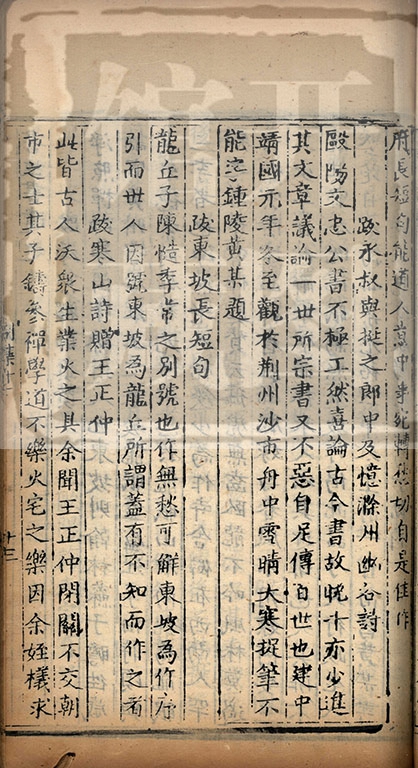 用長短句能道人意中事宛轉愁切自是佳作
跋永叔與挺之郎中及憶滁州幽谷詩
歐陽文忠公書不極工然喜論古今書故晚年亦少進
其文章議論一世所宗書又不惡自足傳百世也建中
靖國元年冬至觀於荆州沙市舟中雪晴大寒捉筆不
能字鍾陵黃某題
跋東坡長短句
龍丘子陳慥季常之別號也作無愁可解東坡為作序
引而世人因號東坡為龍丘所謂蓋有不知而作之者
跋寒山詩贈王正仲
此皆古人沃衆生業火之具余聞王正仲閉關不交朝
市之士其子鑄參禪學道不樂火宅之樂因余姪樸求
別集十
十三